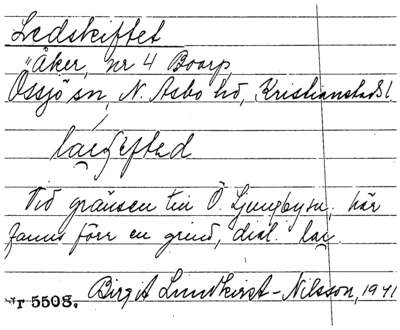 Ledskiftet
"Åker, nr 4 Boarp
Össjö sn, N. Åsbo hd, Kristianstads l
Vid gränsen till Ö. Ljungby sn, här
fanns förr en grind, dial. lai.
Nr 5508. Birgit Lundkvist-Nilsson, 1941